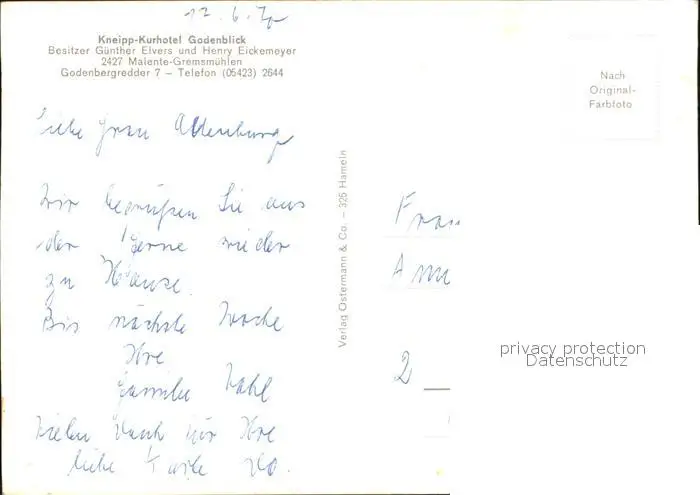 12.6.70
Kneipp-Kurhotel Godenblick
Besitzer Günther Elvers und Henry Eickemeyer
2427 Malente-Gremsmühlen
Godenbergredder 7 – Telefon (05423) 2644
Nach
Original-
Farbfoto
Liebe Frau Altenburg
Wir begrüßen Sie aus
der Ferne wieder
zu Hause.
Bis nächste Woche
Ihre
Familie
Vielen Dank für Ihre
liebe
Verlag Ostermann & Co. – 325 Hameln
Frau
2
privacy protection
Datenschutz